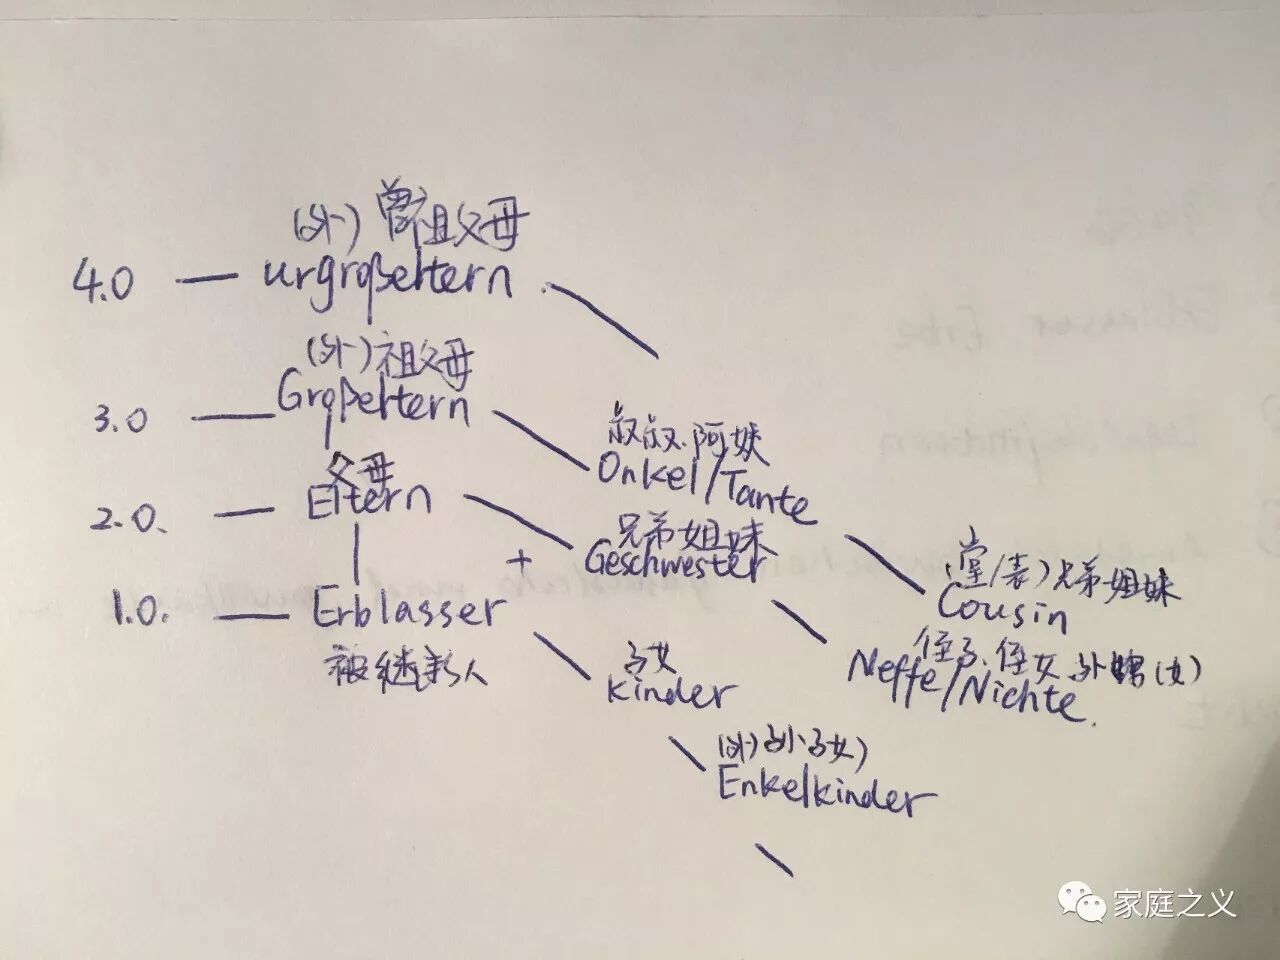 (外)曾祖父母
4.0 — urgroßeltern
(外)祖父母
3.0 — Großeltern
叔叔.阿姨
Onkel/Tante
父母
2.0. — Eltern
兄弟姐妹
+ Geschwester
(堂/表)兄弟姐妹
Cousin
1.0. — Erblasser
被继承人
子女
kinder
侄子、侄女 外甥(女)
Neffe/Nichte.
(外)孙子女)
Enkelkinder
家庭之义